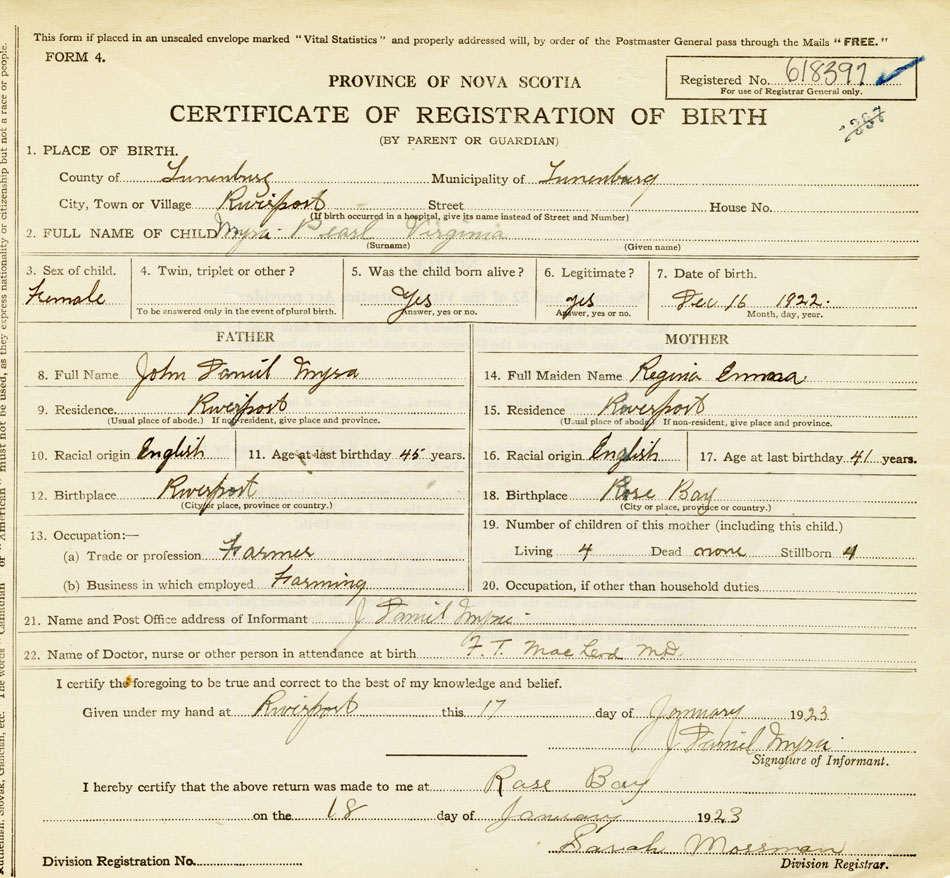 This form if placed in an unsealed envelope marked "Vital Statistics" and properly addressed will, by order of the Postmaster General pass through the Mails "FREE."
FORM 4.
PROVINCE OF NOVA SCOTIA
Registered No. 618397
For use of Registrar General only.
CERTIFICATE OF REGISTRATION OF BIRTH
(BY PARENT OR GUARDIAN)
1. PLACE OF BIRTH.
County of Lunenburg Municipality of Lunenburg
City, Town or Village Riverport Street House No.
(If birth occurred in a hospital, give its name instead of Street and Number)
2. FULL NAME OF CHILD Myra Pearl Virginia
(Surname) (Given name)
3. Sex of child. 4. Twin, triplet or other? 5. Was the child born alive? 6. Legitimate? 7. Date of birth.
Female Yes yes Dec 16 1922.
To be answered only in the event of plural birth. Answer, yes or no. Answer, yes or no. Month, day, year.
FATHER MOTHER
8. Full Name John Daniel Myra 14. Full Maiden Name Regina
9. Residence. Riverport 15. Residence Riverport
(Usual place of abode.) If non-resident, give place and province. (Usual place of abode) If non-resident, give place and province.
10. Racial origin English 11. Age at last birthday 45 years. 16. Racial origin English 17. Age at last birthday 41 years.
12. Birthplace Riverport 18. Birthplace Rose Bay
(City or place, province or country.) (City or place, province or country.)
13. Occupation:— 19. Number of children of this mother (including this child.)
(a) Trade or profession Farmer Living 4 Dead none Stillborn
(b) Business in which employed Farming 20. Occupation, if other than household duties
21. Name and Post Office address of Informant J Daniel Myra
22. Name of Doctor, nurse or other person in attendance at birth F. T. MacLeod M.D.
I certify the foregoing to be true and correct to the best of my knowledge and belief.
Given under my hand at Riverport this 17 day of January 1923
J Daniel Myra
Signature of Informant.
I hereby certify that the above return was made to me at Rose Bay
on the 18 day of January 1923
Sarah Mossman
Division Registration No. Division Registrar.